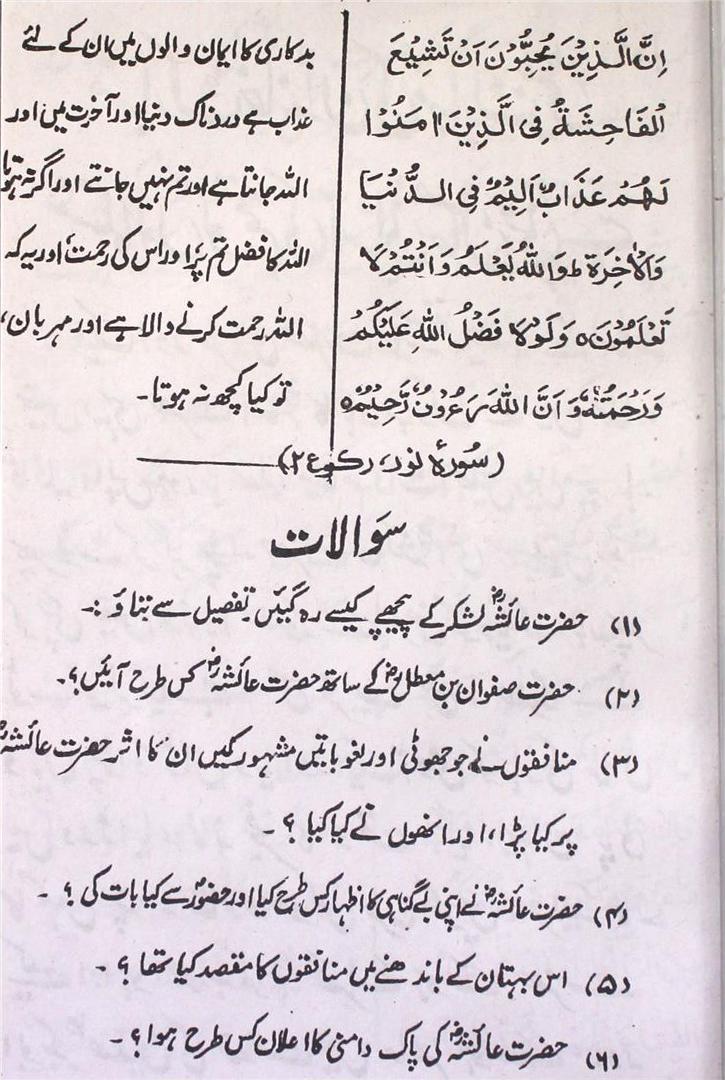 اِنَّ الَّذِيْنَ يُحِبُّوْنَ اَنْ تَشِيْعَ
الْفَاحِشَةُ فِى الَّذِيْنَ اٰمَنُوْا
لَهُمْ عَذَابٌ اَلِيْمٌ فِى الدُّنْيَا
وَالْاٰخِرَةِ ط وَاللهُ يَعْلَمُ وَاَنْتُمْ لَا
تَعْلَمُوْنَ ه وَلَوْلَا فَضْلُ اللهِ عَلَيْكُمْ
وَرَحْمَتُهٗ وَاَنَّ اللهَ رَءُوْفٌ رَّحِيْمٌ ه
بدکاری کا ایمان والوں میں ان کے لئے
عذاب ہے دردناک دنیا اور آخرت میں اور
اللہ جانتا ہے اور تم نہیں جانتے اور اگر نہ ہوتا
اللہ کا فضل تم پر اور اس کی رحمت اور یہ کہ
اللہ رحمت کرنے والا ہے اور مہربان،
تو کیا کچھ نہ ہوتا۔
(سُورۃ نور، رکوع ۲)
سوالات
(۱) حضرت عائشہؓ لشکر کے پیچھے کیسے رہ گئیں تفصیل سے بتاؤ :۔
(۲) حضرت صفوان بن معطلؓ کے ساتھ حضرت عائشہؓ کس طرح آئیں ؟۔
(۳) منافقوں نے جو جھوٹی اور لغو باتیں مشہور کیں ان کا اثر حضرت عائشہؓ
پر کیا پڑا، اور انھوں نے کیا کیا ؟ ۔
(۴) حضرت عائشہؓ نے اپنی بے گناہی کا اظہار کس طرح کیا اور حضورؐ سے کیا بات کی ؟ ۔
(۵) اس بہتان کے باندھنے میں منافقوں کا مقصد کیا تھا ؟ ۔
(۶) حضرت عائشہؓ کی پاک دامنی کا اعلان کس طرح ہوا ؟ ۔